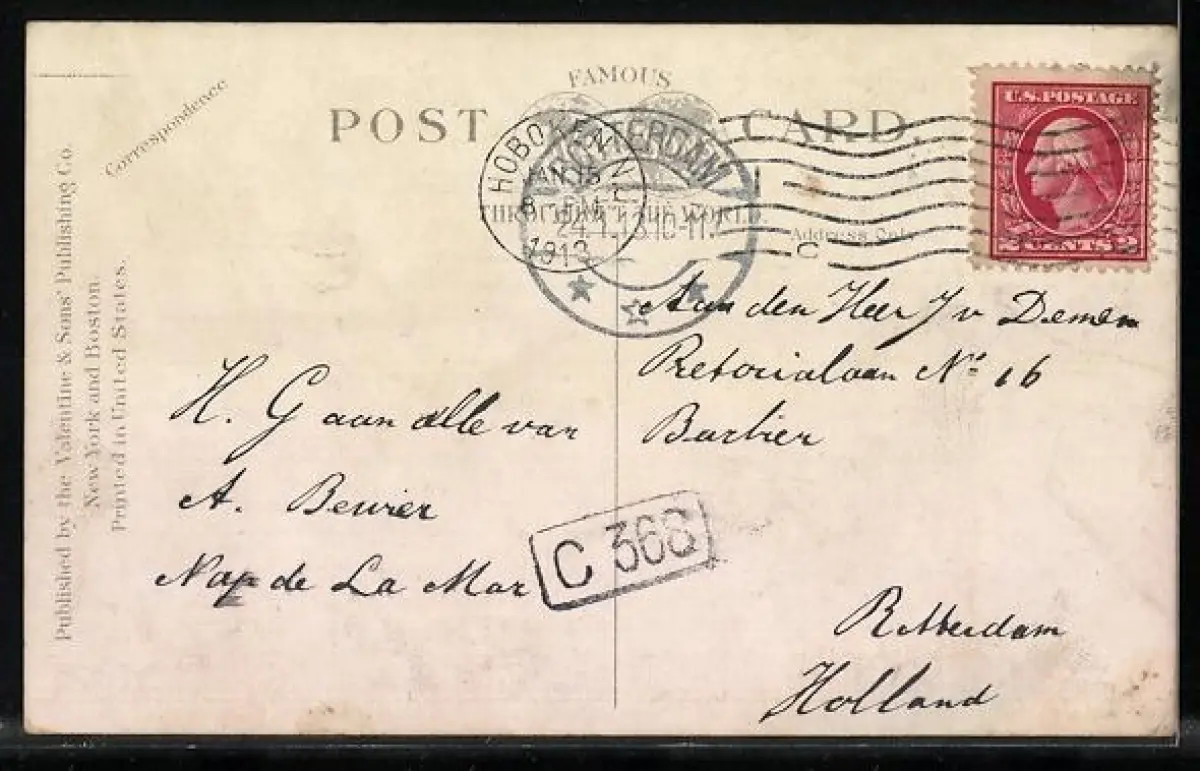 FAMOUS
POST CARD.
THROUGHOUT THE WORLD
Correspondence
Address Only
Published by the Valentine & Sons' Publishing Co.
New York and Boston.
Printed in United States.
HOBOKEN N
JAN 15
1913
ROTTERDAM
24.1.13.10-11
C
U.S. POSTAGE
2 CENTS 2
Aan den Heer J v Demem
Pretorialaan No 16
Barbier
Rotterdam
Holland
H. G aan alle van
A.
Nap de La Mar
C 368